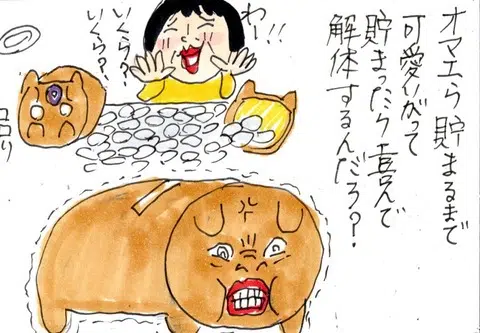 オマエら貯まるまで
可愛いがって
貯まったら喜んで
解体するんだろ?
わー!!
いくら?
いくら?
コロリ